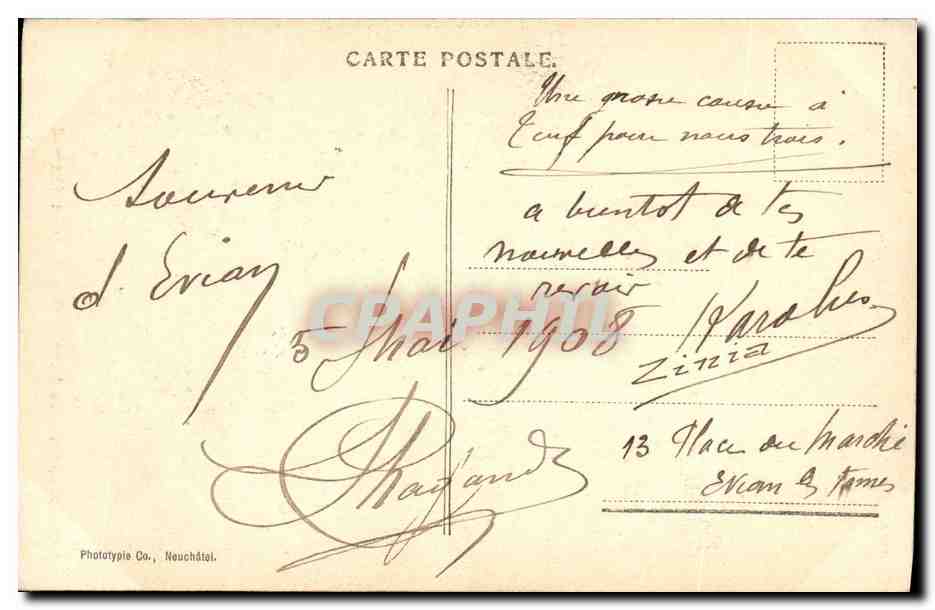 CARTE POSTALE.
Une grosse cause à
pour nous trois.
Souvenir
d'Evian
a bientot de tes
nouvelles et de te
revoir
5 Mai 1908
Zinia
13 Place du Marché
Evian les
Phototypie Co., Neuchâtel.
CPAPHIL